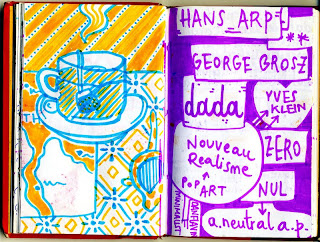 TH
HANS_ARP_
**
GEORGE GROSZ
dada
YVES
KLEIN
NOUVEAU
Realisme
ZERO
POP ART
NUL
MINIMALIST
a.neutral a.p.